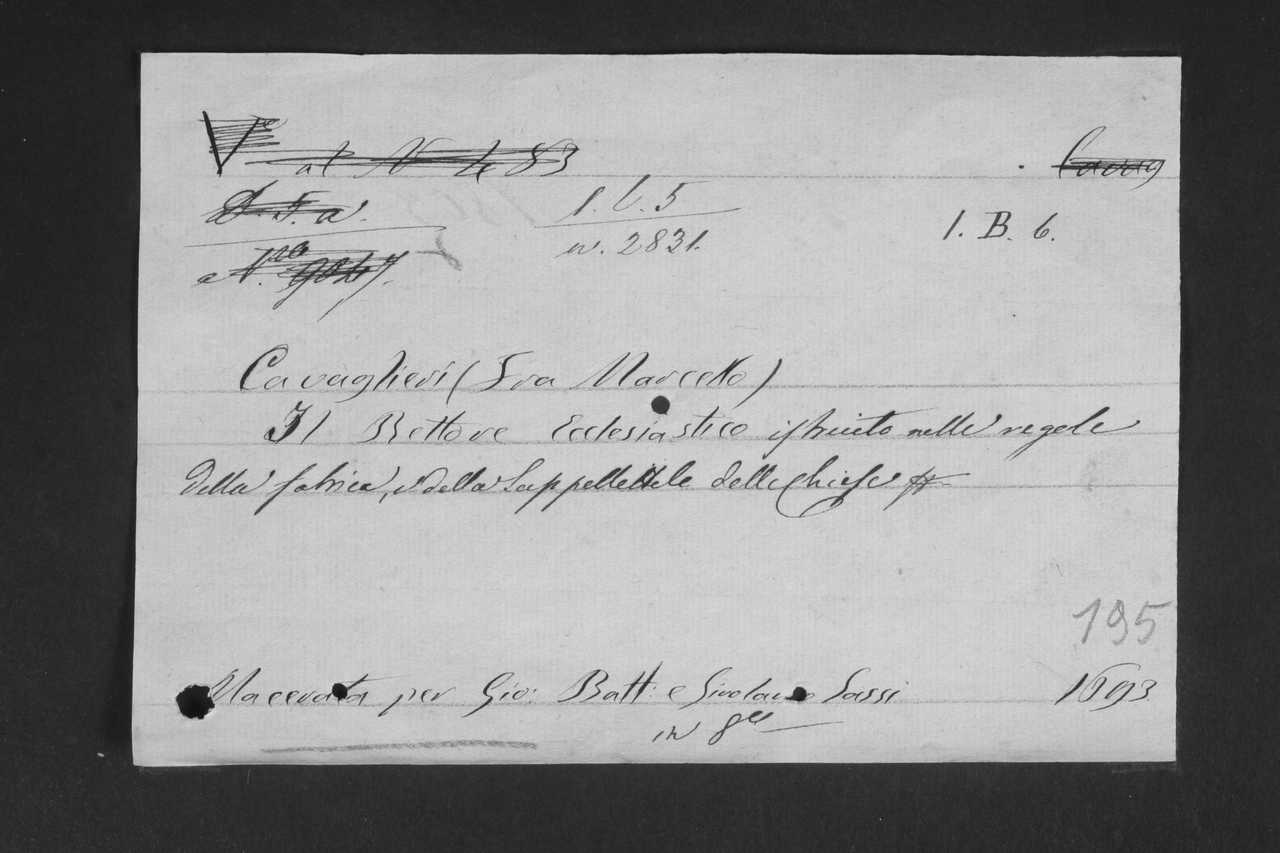 al N 483
1. b. 5
n. 2831.
1. B. 6.
Cavaglieri (Fra Marcello)
Il Rettore Ecclesiastico istruito nelle regole
della fabrica, e della Suppellettile delle Chiese
195
Macerata per Gio: Batt: e Girolamo Sassi 1693
in 8